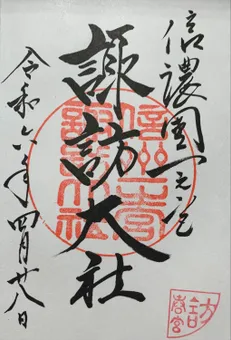 信濃國一之宮
諏訪大社
令和六年四月廿八日